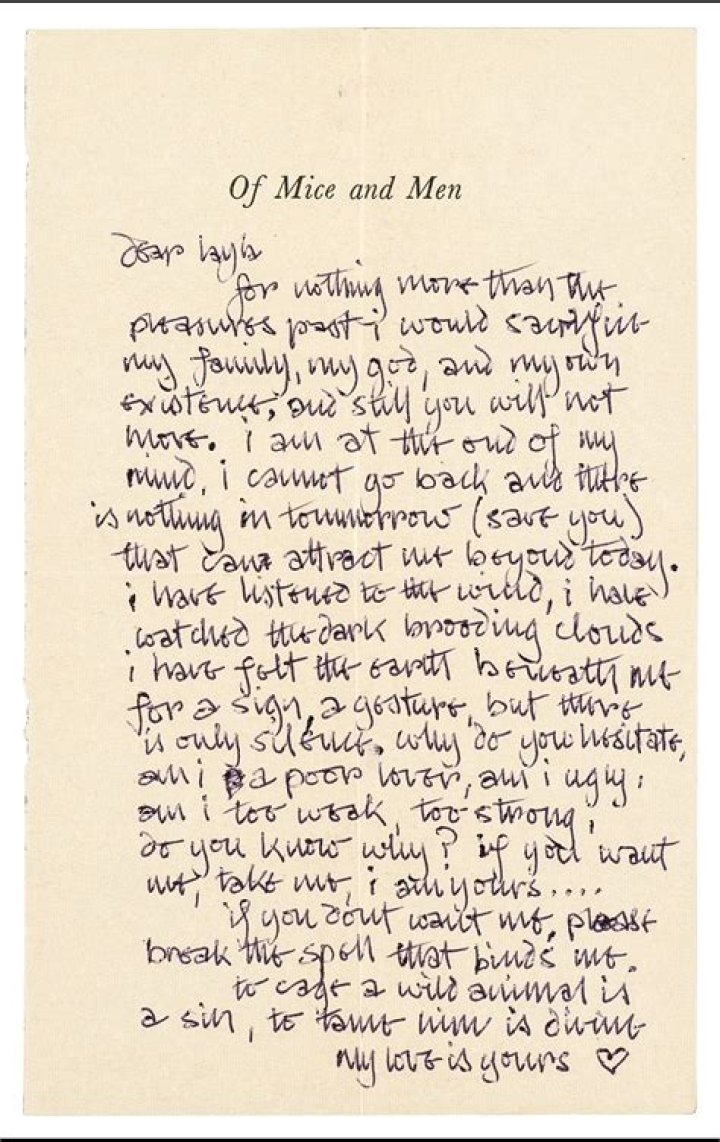 Of Mice and Men
dear layla
for nothing more than the
pleasures past i would sacrifice
my family, my god, and my own
existence, and still you will not
move. i am at the end of my
mind, i cannot go back and there
is nothing in tommorrow (save you)
that can attract me beyond today.
i have listened to the wind, i have
watched the dark brooding clouds
i have felt the earth beneath me
for a sign, a gesture, but there
is only silence. why do you hesitate,
am i a poor lover, am i ugly,
am i too weak, too strong,
do you know why? if you want
me, take me, i am yours....
if you dont want me, please
break the spell that binds me.
to cage a wild animal is
a sin, to tame him is divine
my love is yours ♡